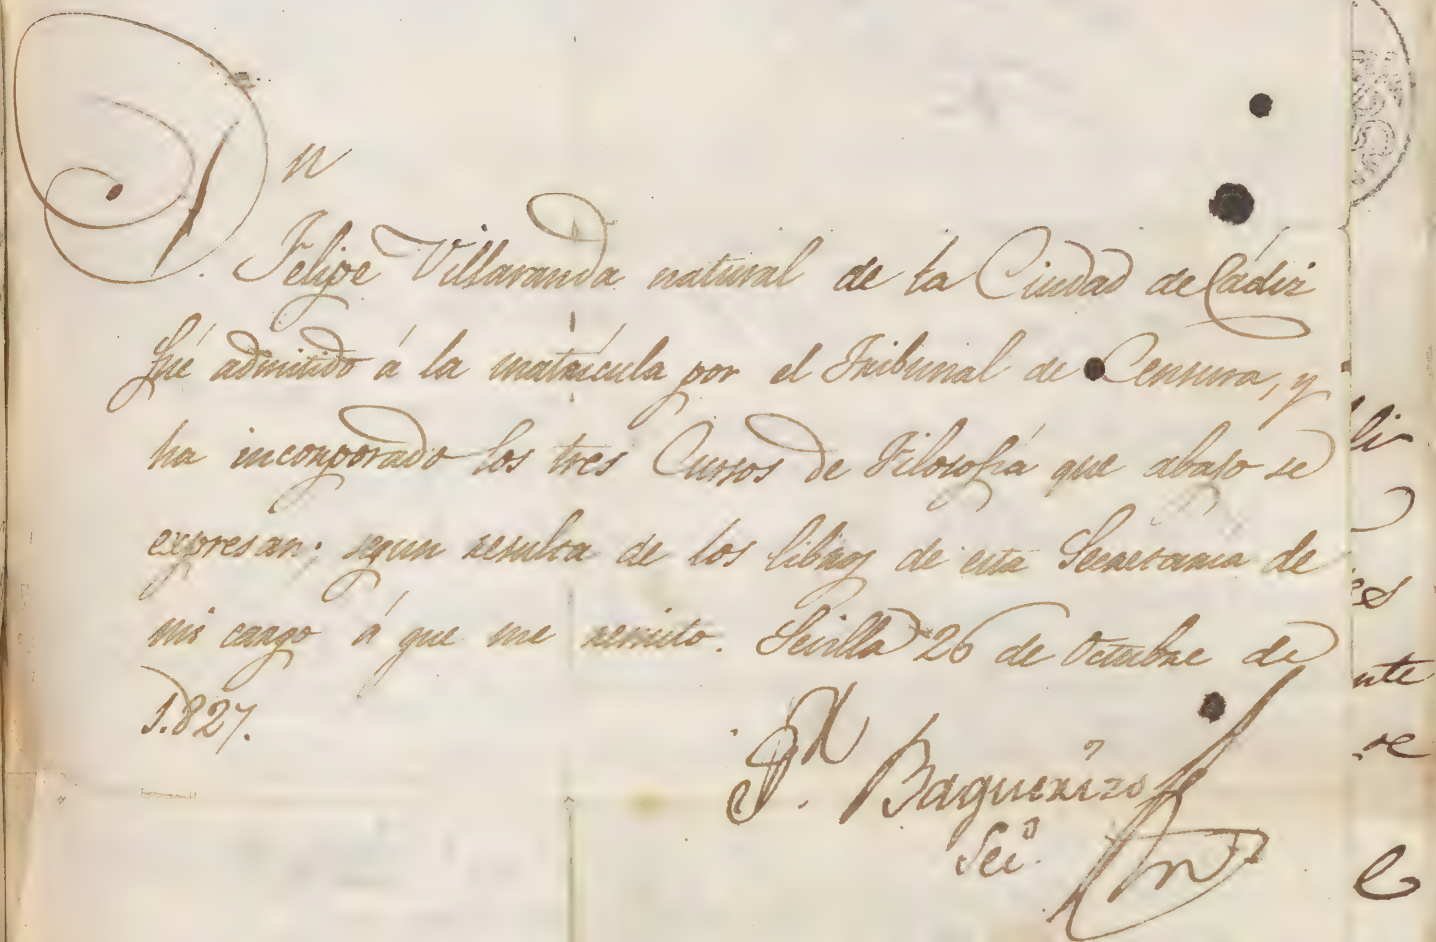 Dn
Felipe Villaranda natural de la Ciudad de Cádiz
fué admitido á la matrícula por el Tribunal de Censura, y
ha incorporado los tres Cursos de Filosofía que abajo se
expresan; segun resulta de los libros de esta Secretaria de
mi cargo á que me remito. Sevilla 26 de Octubre de
1.827.
Baquerizo
Seco.